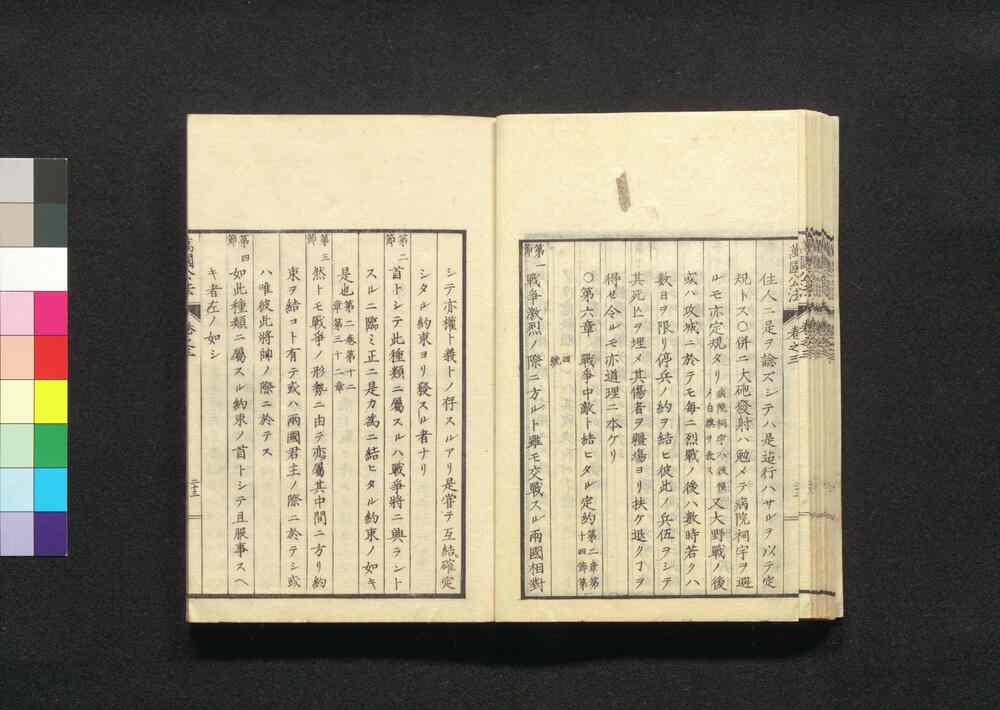 萬國公法 卷之三
住人ニ是ヲ諗ズシテハ是ヲ行ハサルヲ以テ定
規トス○併ニ大砲發射ハ勉メテ病院祠宇ヲ避
ルモ亦定規タリ
病院祠宇ハ
メ白旗ヲ
又大野戰ノ後
或ハ攻城ニ於テモ每ニ烈戰ノ後ハ數時若クハ
數日ヲ限リ停兵ノ約ヲ結ヒ彼此ノ兵伍ヲシテ
其死亾ヲ埋メ其傷者ヲ戰場ヨリ扶ケ退クヿヲ
得セ令ルモ亦道理ニ本ケリ
○第六章 戰爭中敵ト結ヒタル定約
第二章第
十四節第
四號
第一節
戰爭激烈ノ際ニ方ルト雖モ交戰スル兩國相對
シテ亦權ト義トノ存スルアリ是嘗テ互結確定
シタル約束ヨリ發スル者ナリ
第二節
首トシテ此種類ニ屬スルハ戰爭將ニ興ラント
スルニ臨ミ正ニ是カ爲ニ結ヒタル約束ノ如キ
是也
第二卷第十二
章第三十二章
第三節
然トモ戰爭ノ形勢ニ由テ亦屬其中間ニ方リ約
束ヲ結コト有テ或ハ兩國君主ノ際ニ於テシ或
ハ唯彼此將帥ノ際ニ於テス
第四節
如此種類ニ屬スル約束ノ首トシテ且服事スヘ
キ者左ノ如シ
萬國公法 卷之三
二十三